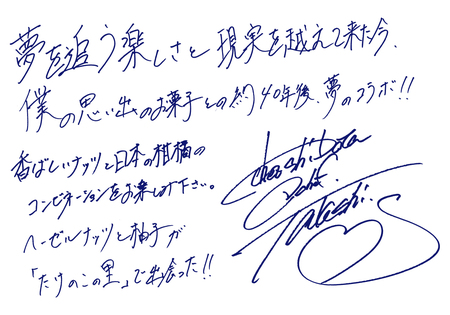 夢を追う楽しさと現実を越えて来た今、
僕の思い出のお菓子との約40年後、夢のコラボ!!
香ばしいナッツと日本の柑橘の
コンビネーションをお楽しみ下さい。
ヘーゼルナッツと柚子が
「たけのこの里」で出会った!!
Takashi